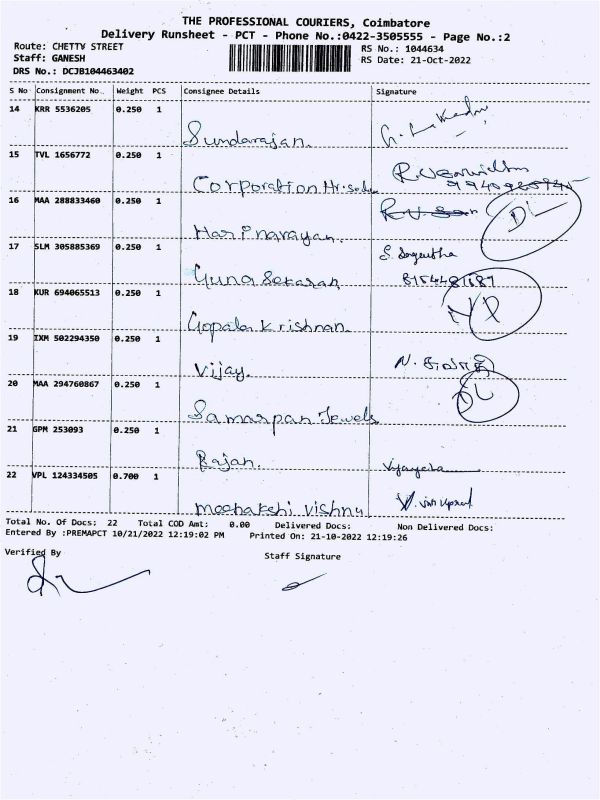 THE PROFESSIONAL COURIERS, Coimbatore
Delivery Runsheet - PCT - Phone No.:0422-3505555 - Page No.:2
Route: CHETTY STREET RS No.: 1044634
Staff: GANESH RS Date: 21-Oct-2022
DRS No.: DCJB104463402
S No Consignment No. Weight PCS Consignee Details Signature
14 KRR 5536205 0.250 1
Sundarajan.
15 TVL 1656772 0.250 1
Corporation Hr.
16 MAA 288833460 0.250 1
DL
Hari narayan.
17 SLM 305885369 0.250 1 S. Sangeetha
Guna Sekaran
18 KUR 694065513 0.250 1
Gopala Krishnan
19 IXM 502294350 0.250 1
Vijay.
20 MAA 294760867 0.250 1 DL
Samarpan Jewels
21 GPM 253093 0.250 1
Rajan.
22 VPL 124334505 0.700 1
meenakshi vishnu
Total No. Of Docs: 22 Total COD Amt: 0.00 Delivered Docs: Non Delivered Docs:
Entered By :PREMAPCT 10/21/2022 12:19:02 PM Printed On: 21-10-2022 12:19:26
Verified By Staff Signature